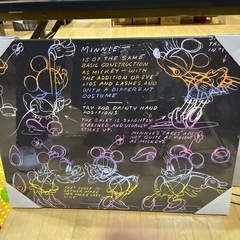 MINNIE —
IS OF THE SAME
BASIC CONSTRUCTION
AS MICKEY — WITH
THE ADDITION OF EYE
LIDS AND LASHES — AND
WITH A DIFFERENT
COSTUME
TRY FOR DAINTY HAND
POSITIONS
THE SKIRT IS SLIGHTLY
STARCHED AND USUALLY
STICKS UP
MINNIE'S TAKES ARE
NOT QUITE AS VIOLENT
AS MICKEY